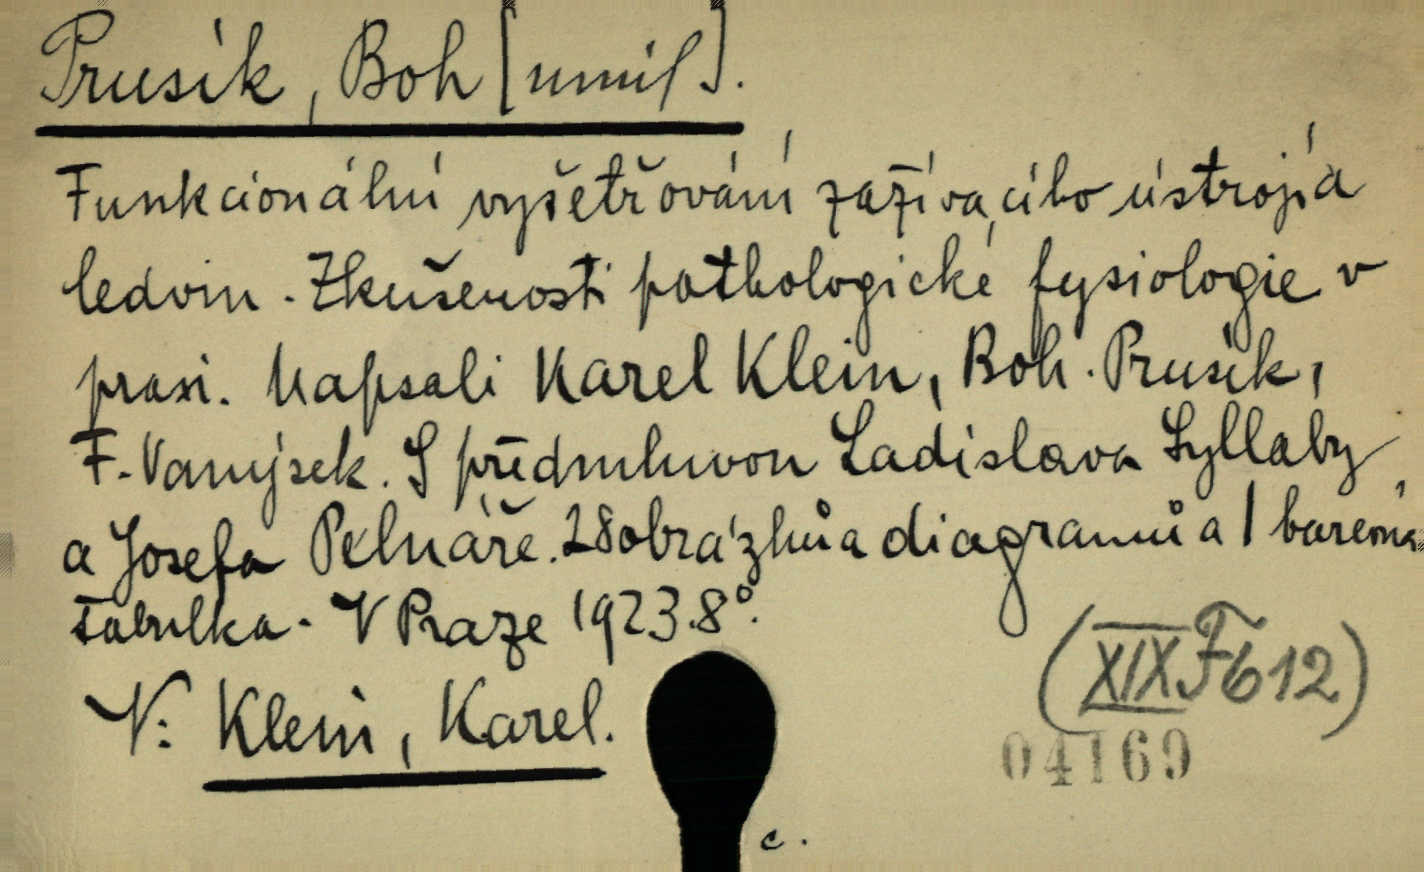 Prusík, Boh[umil].
Funkcionální vyšetřování zažívacího ústrojí a
ledvin. Zkušenosti pathologické fysiologie v
praxi. Napsali Karel Klein, Boh. Prusík,
F. Vanýsek. S předmluvou Ladislava Syllaby
a Josefa Pelnáře. 28 obrázků a diagramů a 1 barevná
tabulka. V Praze 1923. 8°.
(XIX F 612)
V: Klein, Karel.
04169
c.